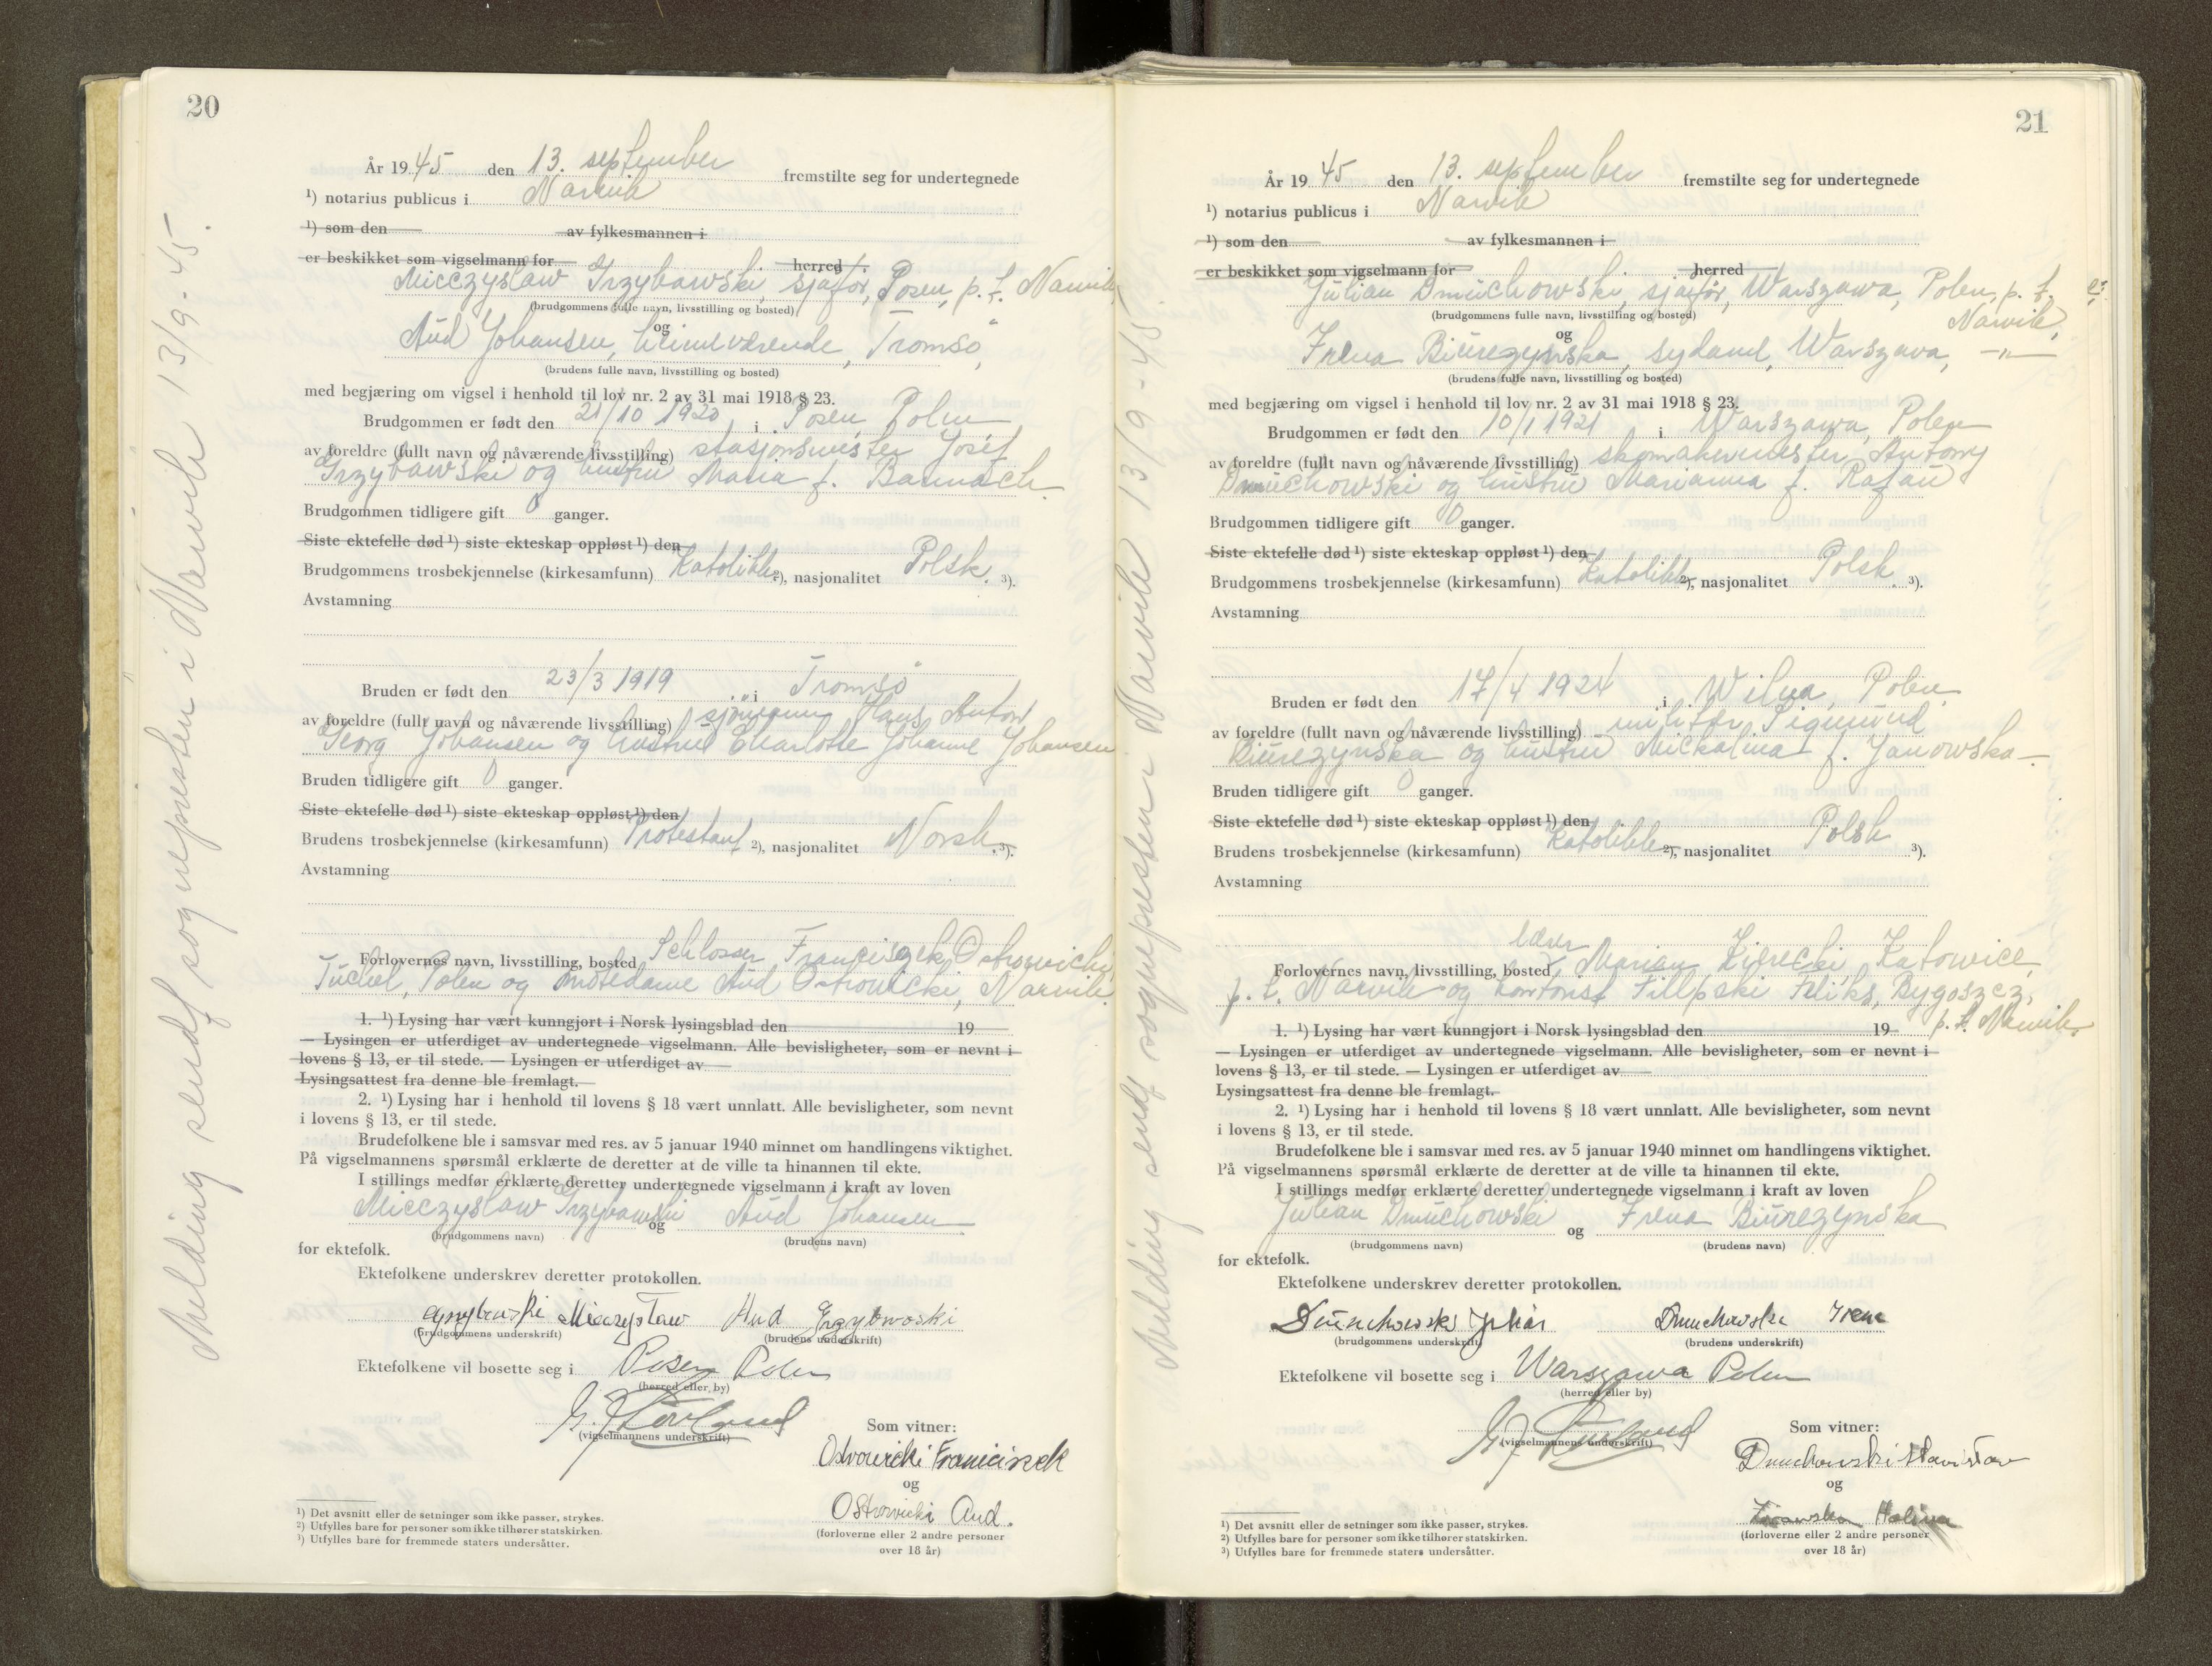 20
År 1945 den 13. september fremstilte seg for undertegnede
¹) notarius publicus i Narvik
¹) som den av fylkesmannen i
er beskikket som vigselmann for herred
Mieczyslaw Grzybawski, sjåfør, Posen, p. t. Narvik
(brudgommens fulle navn, livsstilling og bosted)
og
Aud Johansen, heimeværende, Tromsö,
(brudens fulle navn, livsstilling og bosted)
med begjæring om vigsel i henhold til lov nr. 2 av 31 mai 1918 § 23.
Brudgommen er født den 21/10 1920 i Posen, Polen
av foreldre (fullt navn og nåværende livsstilling) stasjonsmester Josef
Grzybawski og hustru Maria f. Bannach.
Brudgommen tidligere gift 0 ganger.
Siste ektefelle død ¹) siste ekteskap oppløst ¹) den
Brudgommens trosbekjennelse (kirkesamfunn) Katolikk ²), nasjonalitet Polsk. ³).
Avstamning
Bruden er født den 23/3 1919 i Tromsö
av foreldre (fullt navn og nåværende livsstilling) sjömann Hans Anton
Georg Johansen og hustru Charlotte Johanne Johansen
Bruden tidligere gift 0 ganger.
Siste ektefelle død ¹) siste ekteskap oppløst ¹) den
Brudens trosbekjennelse (kirkesamfunn) Protestant ²), nasjonalitet Norsk. ³).
Avstamning
Forlovernes navn, livsstilling, bosted Schlosser Franciszek Ostrowicki
Tuchel, Polen og motedame Aud Ostrowicki, Narvik.
1. ¹) Lysing har vært kunngjort i Norsk lysingsblad den 19
— Lysingen er utferdiget av undertegnede vigselmann. Alle bevisligheter, som er nevnt i
lovens § 13, er til stede. — Lysingen er utferdiget av
Lysingsattest fra denne ble fremlagt.
2. ¹) Lysing har i henhold til lovens § 18 vært unnlatt. Alle bevisligheter, som nevnt
i lovens § 13, er til stede.
Brudefolkene ble i samsvar med res. av 5 januar 1940 minnet om handlingens viktighet.
På vigselmannens spørsmål erklærte de deretter at de ville ta hinannen til ekte.
I stillings medfør erklærte deretter undertegnede vigselmann i kraft av loven
Mieczyslaw Grzybawski og Aud Johansen
(brudgommens navn) (brudens navn)
for ektefolk.
Ektefolkene underskrev deretter protokollen.
Grzybowski Mieczysław Aud Grzybowoski
(brudgommens underskrift) (brudens underskrift)
Ektefolkene vil bosette seg i Posen Polen
(herred eller by)
(vigselmannens underskrift)
Som vitner:
Ostrowicki Franciszek
og
Ostrowicki Aud.
(forloverne eller 2 andre personer
over 18 år)
¹) Det avsnitt eller de setninger som ikke passer, strykes.
²) Utfylles bare for personer som ikke tilhører statskirken.
³) Utfylles bare for fremmede staters undersåtter.
Melding sendt sognepresten i Narvik 13/9-45.
21
År 1945 den 13. september fremstilte seg for undertegnede
¹) notarius publicus i Narvik
¹) som den av fylkesmannen i
er beskikket som vigselmann for herred
Julian Dmuchowski, sjåför, Warszawa, Polen, p. t.
Narvik,
(brudgommens fulle navn, livsstilling og bosted)
og
Irena Biurezynska, sydame, Warszava, —"—
(brudens fulle navn, livsstilling og bosted)
med begjæring om vigsel i henhold til lov nr. 2 av 31 mai 1918 § 23.
Brudgommen er født den 10/1 1921 i Warszawa, Polen
av foreldre (fullt navn og nåværende livsstilling) skomakermester Antony
Dmuchowski og hustru Marianna f. Rafau
Brudgommen tidligere gift 0 ganger.
Siste ektefelle død ¹) siste ekteskap oppløst ¹) den
Brudgommens trosbekjennelse (kirkesamfunn) Katolikk ²), nasjonalitet Polsk. ³).
Avstamning
Bruden er født den 17/4 1924 i Wilna, Polen.
av foreldre (fullt navn og nåværende livsstilling) militær Sigmund
Biurezynska og hustru Mickalina f. Janowska—.
Bruden tidligere gift 0 ganger.
Siste ektefelle død ¹) siste ekteskap oppløst ¹) den
Brudens trosbekjennelse (kirkesamfunn) Katolikk ²), nasjonalitet Polsk ³).
Avstamning
lærer
Forlovernes navn, livsstilling, bosted, Marian Zierecki, Katowice,
p. t. Narvik og kontorist Fillpski Feliks, Bygoszcz,
p. t. Narvik.
1. ¹) Lysing har vært kunngjort i Norsk lysingsblad den 19
— Lysingen er utferdiget av undertegnede vigselmann. Alle bevisligheter, som er nevnt i
lovens § 13, er til stede. — Lysingen er utferdiget av
Lysingsattest fra denne ble fremlagt.
2. ¹) Lysing har i henhold til lovens § 18 vært unnlatt. Alle bevisligheter, som nevnt
i lovens § 13, er til stede.
Brudefolkene ble i samsvar med res. av 5 januar 1940 minnet om handlingens viktighet.
På vigselmannens spørsmål erklærte de deretter at de ville ta hinannen til ekte.
I stillings medfør erklærte deretter undertegnede vigselmann i kraft av loven
Julian Dmuchowski og Irena Biurezynska
(brudgommens navn) (brudens navn)
for ektefolk.
Ektefolkene underskrev deretter protokollen.
Dmuchowski Dmuchowska Irena
(brudgommens underskrift) (brudens underskrift)
Ektefolkene vil bosette seg i Warszawa Polen
(herred eller by)
(vigselmannens underskrift)
Som vitner:
Dmuchowski
og
Halina
(forloverne eller 2 andre personer
over 18 år)
¹) Det avsnitt eller de setninger som ikke passer, strykes.
²) Utfylles bare for personer som ikke tilhører statskirken.
³) Utfylles bare for fremmede staters undersåtter.
Melding sendt sognepresten i Narvik 13/9-45.